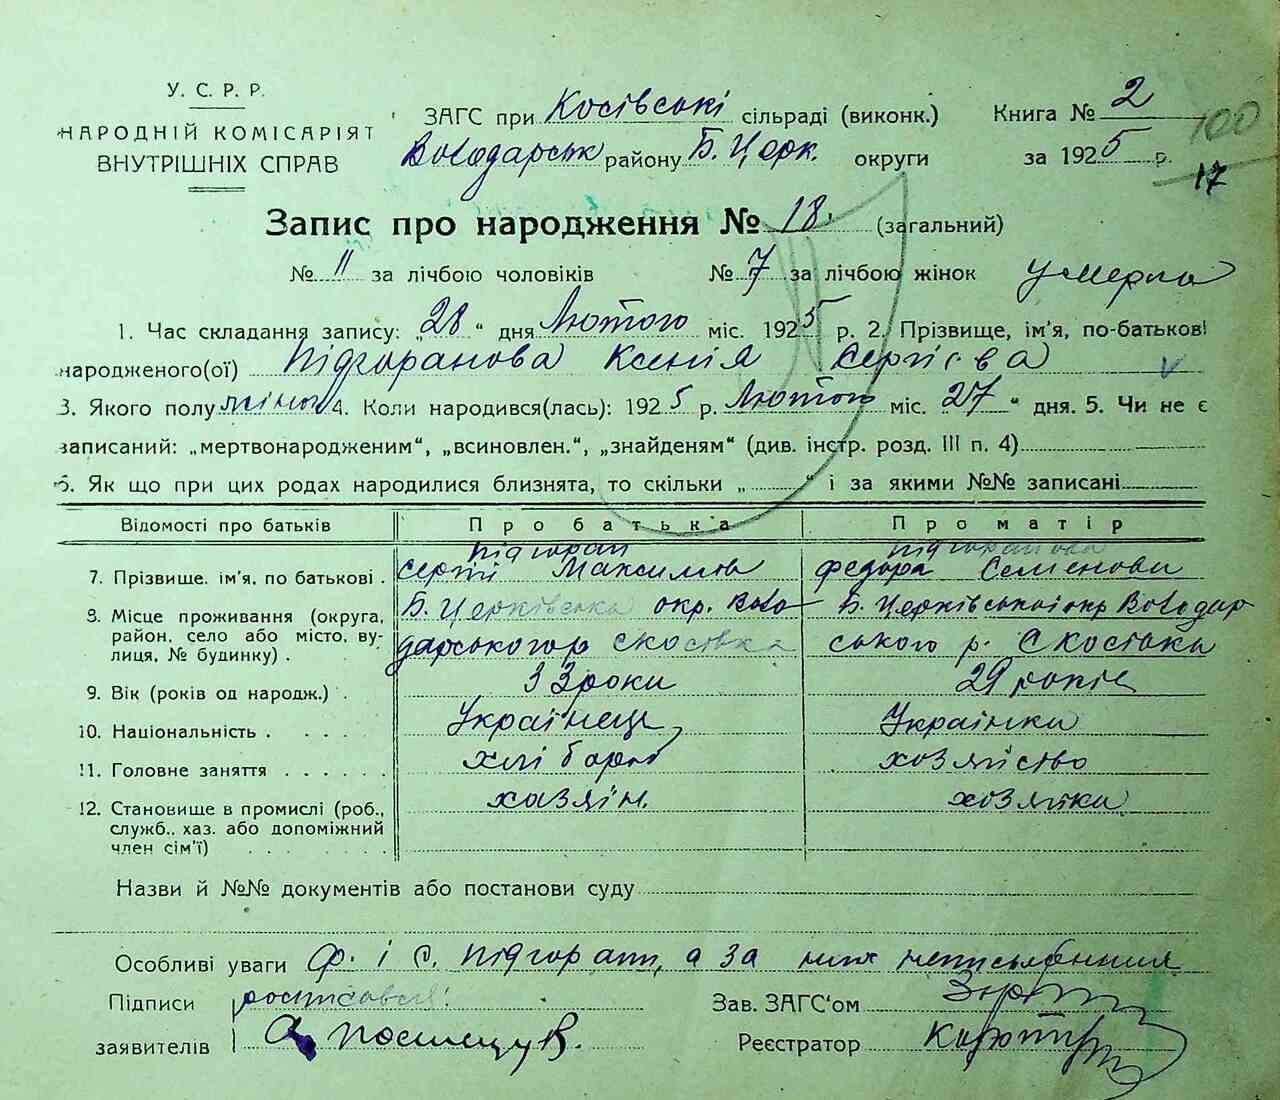 У. С. Р. Р.
НАРОДНІЙ КОМІСАРІЯТ
ВНУТРІШНІХ СПРАВ
ЗАГС при Косівські сільраді (виконк.) Книга № 2
Володарськ району Б. Церк. округи за 1925 р.
100
17
Запис про народження № 18. (загальний)
№ 11 за лічбою чоловіків № 7 за лічбою жінок умерла
1. Час складання запису: „28" дня Лютого міс. 1925 р. 2. Прізвище, ім'я, по-батькові
народженого(ої) Підгоранова Ксенія Сергієва
3. Якого полу жіночо 4. Коли народився(лась): 1925 р. Лютого міс. 27" дня. 5. Чи не є
записаний: „мертвонародженим", „всиновлен.", „знайденям" (див. інстр. розд. III п. 4)
6. Як що при цих родах народилися близнята, то скільки „ " і за якими №№ записані
Відомості про батьків Про батька Про матір
7. Прізвище, ім'я, по батькові . Підгоран Сергій Максимов Підгоранова Федора Семенови
8. Місце проживання (округа, Б. Церківська окр. Воло Б. Церківської окр Володар
район, село або місто, ву- дарського р с Косівка ського р. с Косівки
лиця, № будинку) .
9. Вік (років од народж.) . 33 роки 29 років
10. Національність . . . . . Українець Українка
11. Головне заняття . . . . . . хлібороб хозяйство
12. Становище в промислі (роб., хазяїн. хозяйка
служб., хаз. або допоміжний
член сім'ї) . . . . . . .
Назви й №№ документів або постанови суду
Особливі уваги Ф. і С. Підгоран, а за них неписьменних
Підписи росписався: Зав. ЗАГС'ом
заявителів Реєстратор